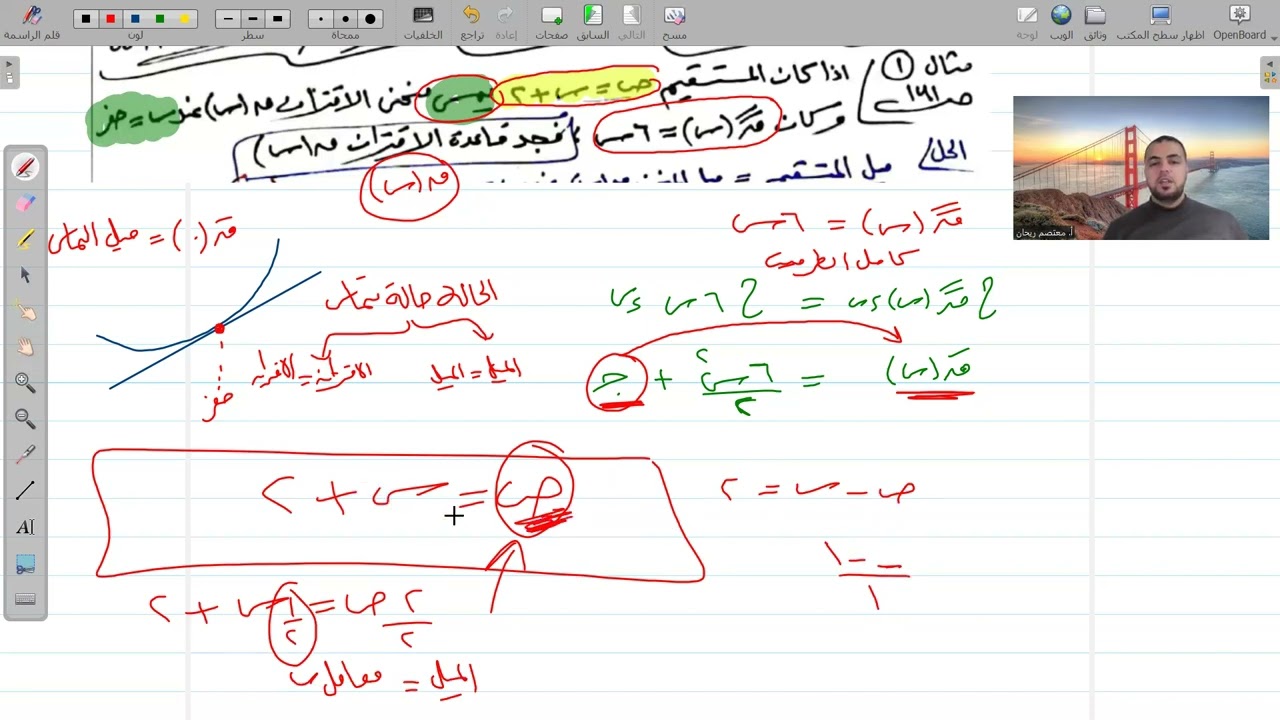 قلم الراسمة
لون
سطر
ممحاة
الخلفيات
تراجع
إعادة
صفحات
السابق
التالي
مسح
لوحة
وثائق
الويب
اظهار سطح المكتب
OpenBoard
مثال ①
ص١٩١
اذا كان المستقيم ص = س + ٢ يمس منحنى الاقتران ق(س) عند س = صفر
وكان قً(س) = ٦س ، فجد قاعدة الاقتران ق(س)
الحل
ميل المستقيم =
ق(س)
أ. معتصم ريحان
قً(س) = ٦س
كامل الطرفين
∫ قً(س) ءس = ∫ ٦س ءس
قَ(س) = ٦س٢/٢ + جـ
قَ(٠) = ميل المماس
صفر
الحالة حالة تماس
الميل = الميل
الاقتران = الاقتران
ص = س + ٢
ص - س = ٢
- -١/١
٢ص/٢ = ١/٢ س + ٢
الميل = معامل س